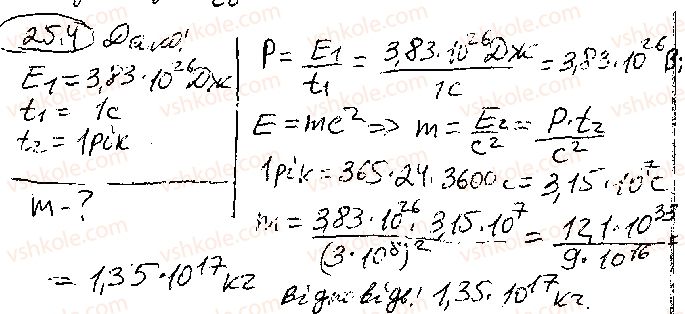 25.4 Дано:
E₁ = 3,83·10²⁶ Дж
t₁ = 1c
t₂ = 1 рік
m - ?
P = E₁/t₁ = 3,83·10²⁶ Дж/1c = 3,83·10²⁶ В;
E = mc² => m = E₂/c² = P·t₂/c²
1 рік = 365·24·3600 c = 3,15·10⁷ c
m = 3,83·10²⁶·3,15·10⁷/(3·10⁸)² = 12,1·10³³/9·10¹⁶ =
= 1,35·10¹⁷ кг
Відповідь: 1,35·10¹⁷ кг.
vshkole.com